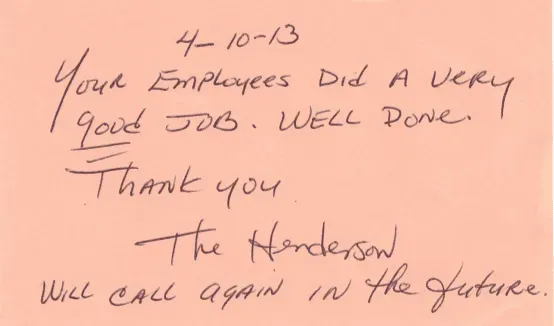 4-10-13
Your Employees Did A Very
good JOB. WELL Done.
Thank you
The Henderson
Will call again in the future.